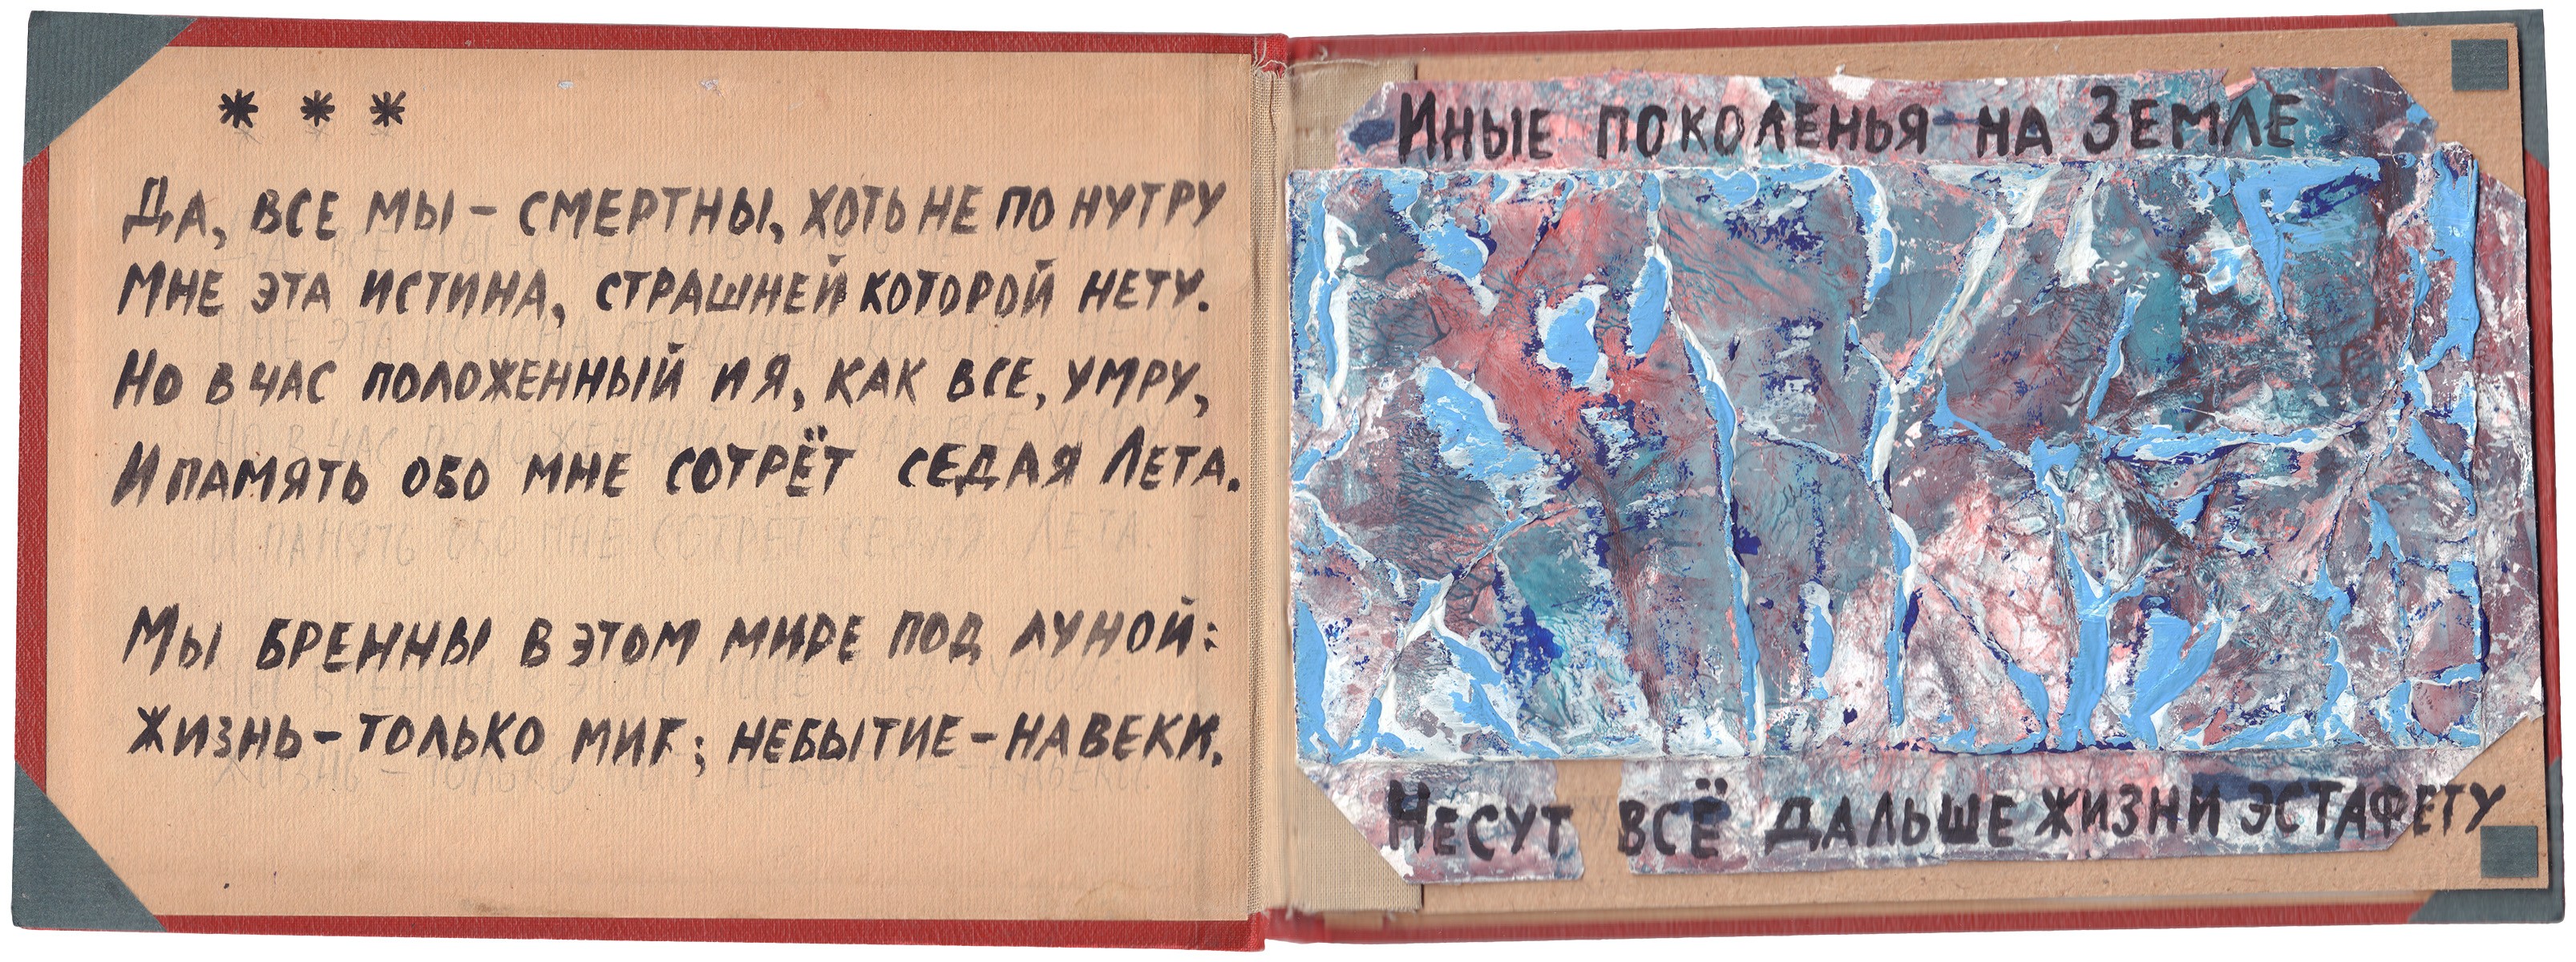 * * *
Да, все мы – смертны, хоть не по нутру
Мне эта истина, страшней которой нету.
Но в час положенный и я, как все, умру,
И память обо мне сотрёт седая Лета.
Мы бренны в этом мире под луной:
Жизнь – только миг; небытие – навеки.
Иные поколенья на Земле
Несут всё дальше жизни эстафету